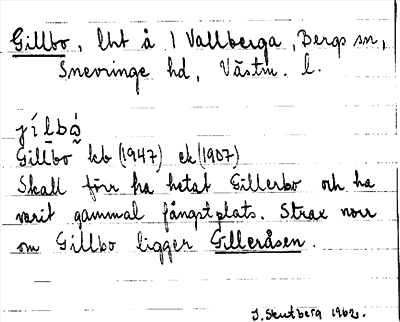 Gillbo, lht å 1 Vallberga, Bergs sn,
Snevringe hd, Västm. l.
jílbo̊
Gillbo kb (1947) ek (1907)
Skall förr ha hetat Gillerbo och ha
varit gammal fångstplats. Strax norr
om Gillbo ligger Gilleråsen.
J. Stutberg 1962.